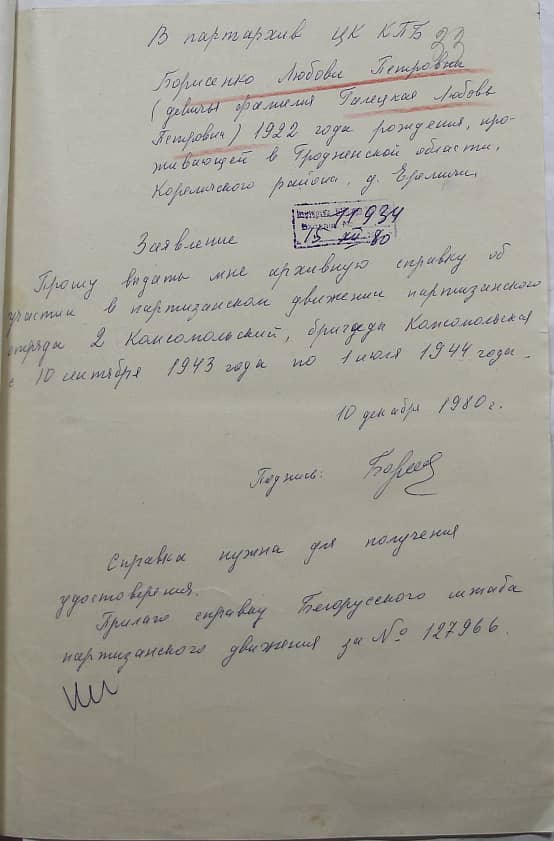 В партархив ЦК КПБ
33
Борисенко Любови Петровны
(девичья фамилия Галецкая Любовь
Петровна) 1922 года рождения, про-
живающей в Гродненской области,
Кореличского района, д. Еремичи.
11934
15 XII 80
Заявление
Прошу выдать мне архивную справку об
участии в партизанском движении партизанского
отряда 2 Комсомольский, бригады Комсомольская
с 10 сентября 1943 года по 1 июля 1944 года.
10 декабря 1980 г.
Подпись:
Справка нужна для получения
удостоверения.
Прилаго справку Белорусского штаба
партизанского движения за № 127966.